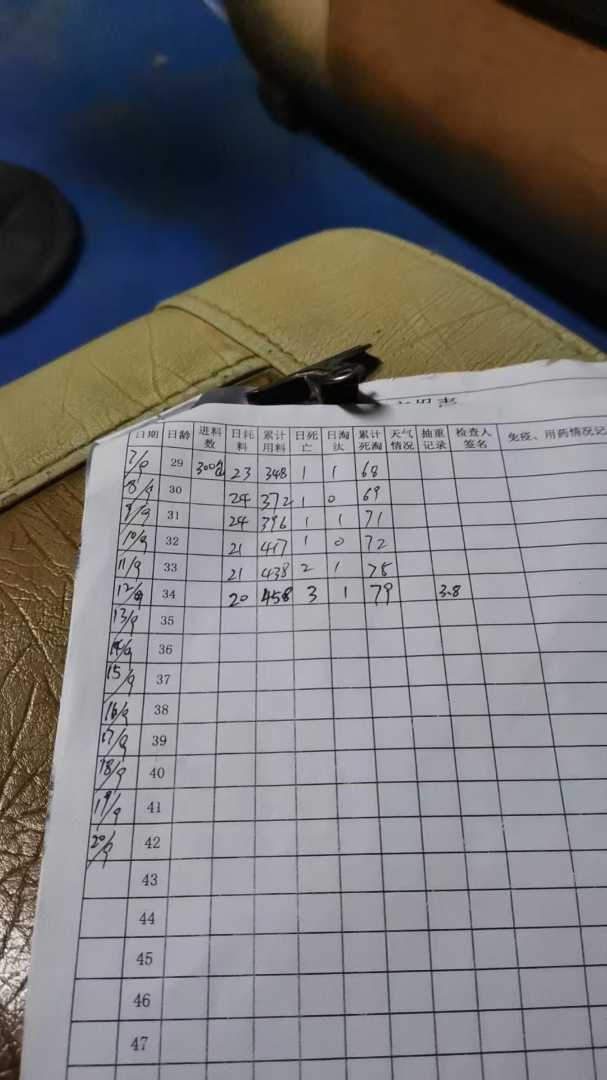 日期 日龄 进料数 日耗料 累计用料 日死亡 日淘汰 累计死淘 天气情况 抽重记录 检查人签名 免疫、用药情况记
7/9 29 300包 23 348 1 1 68
8/9 30 24 372 1 0 69
9/9 31 24 396 1 1 71
10/9 32 21 417 1 0 72
11/9 33 21 438 2 1 75
12/9 34 20 458 3 1 79 3.8
13/9 35
14/9 36
15/9 37
16/9 38
17/9 39
18/9 40
19/9 41
20/9 42
43
44
45
46
47